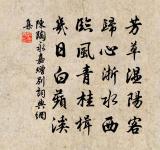 芳草溫陽客
歸心浙水西
臨風青桂楫
幾日白蘋溪
陳陶永嘉贈別詞典網
集